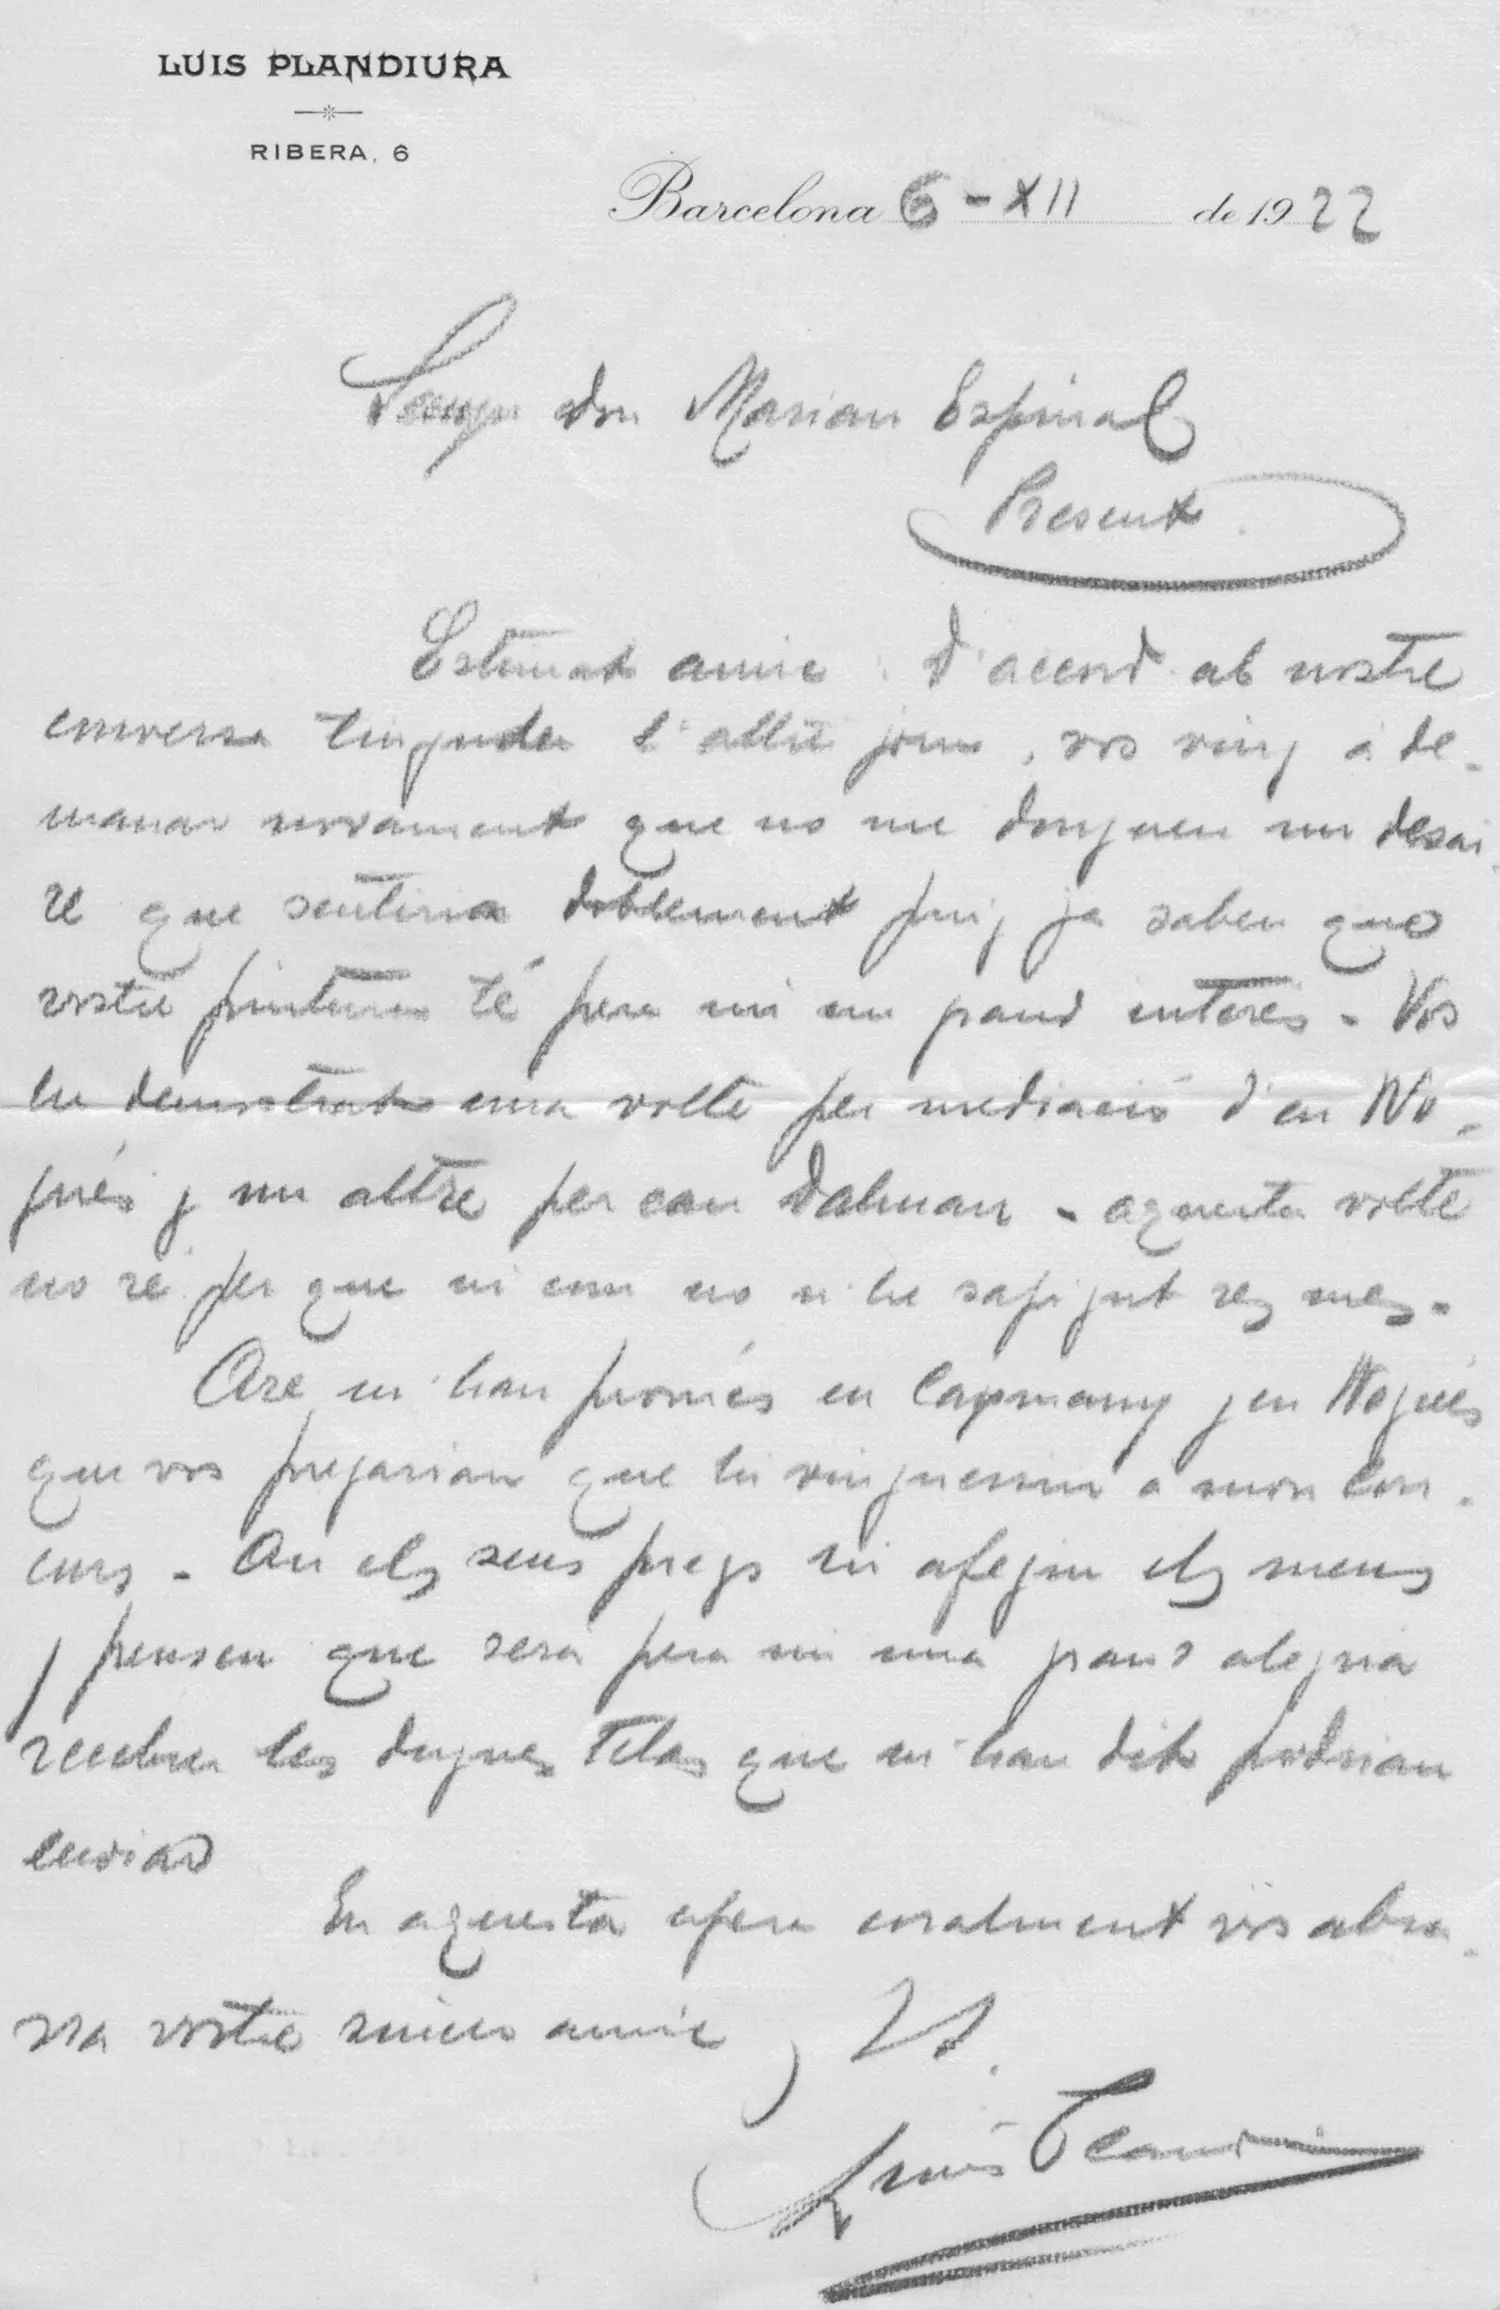 LUIS PLANDIURA
RIBERA, 6
Barcelona 6 - XII de 1922
Senyor don Marian Espinal
Present
Estimat amic. D'acord ab nostre
conversa tinguda l'altre jorn, vos vinj á de-
manar novament que no me donguen un desai-
re que sentiria doblement puig ja saben que
vostre pintura té pera mi un grand interés - Vos
he demostrat una volta per mediació d'en No-
gués y un altre per can Dalmau - aquesta volta
no sé per que ni com no n'he sapigut res mes.
Are m'han promés en Capmany y en Nogués
que vos pregarian que hi vinguessin a mon con-
curs - An els seus pregs hi afegin els meus
y pensen que será pera mi una grand alegria
recebre les dugues telas que m'han dit podrian
enviar
En aquesta espera coralment vos abra-
ssa vostre sincer amic,
Luis Plandiura